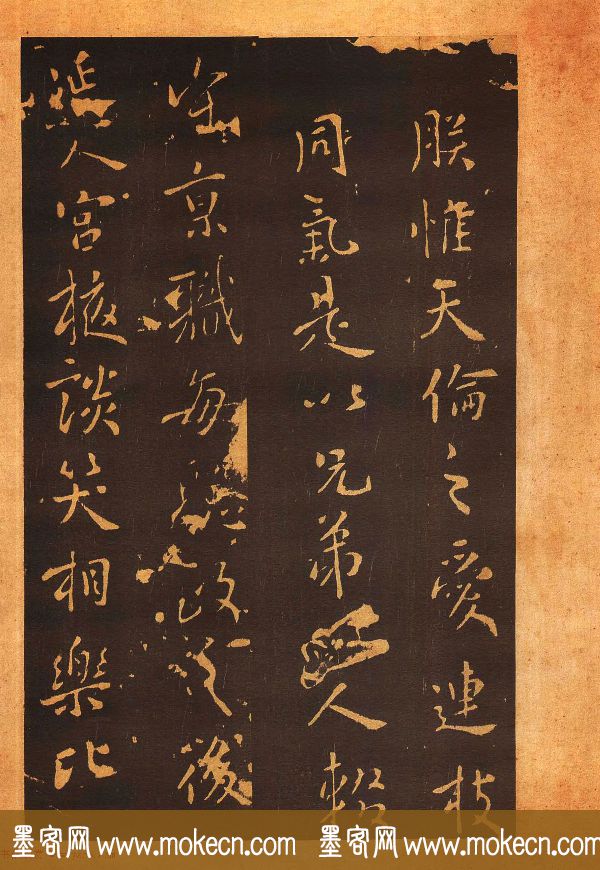 朕惟天倫之愛連枝
同氣是以兄弟人輟
京職每政後
延入宮掖談笑相樂比
墨客网 www.mokecn.com 墨客网 www.mokecn.com